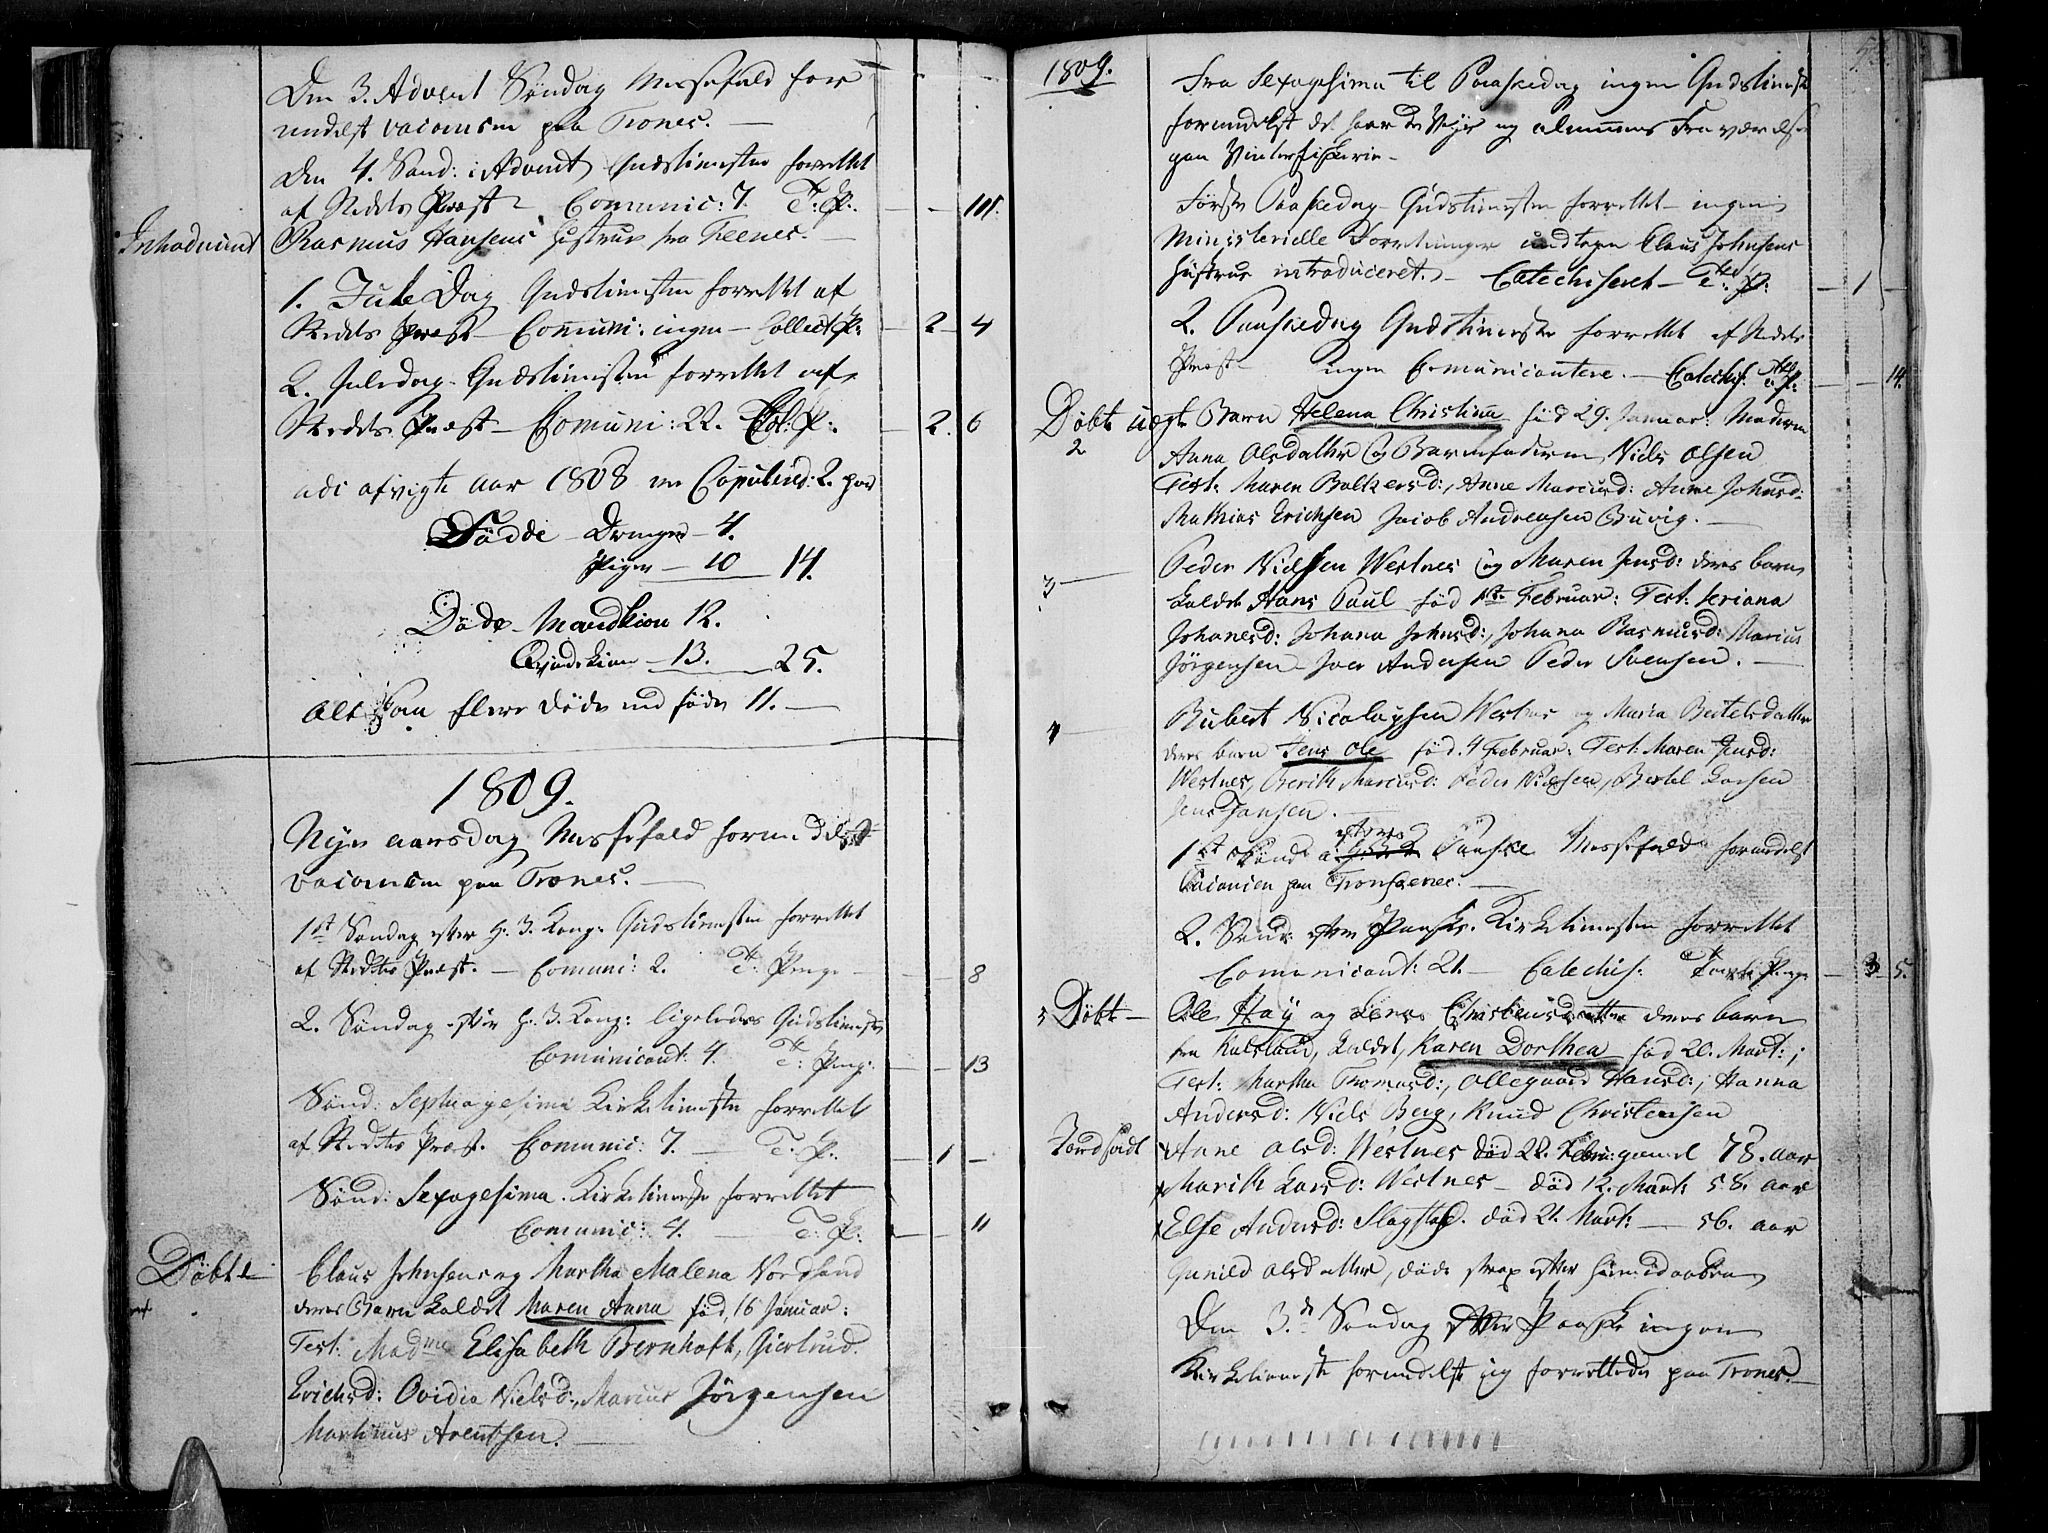 Den 3. Advent Søndag Messefald for
medelst vacancen paa Trones. —
Den 4. Sønd: i Advent Gudstienesten forrettet
af Stedets Præst – Comunic: 7. T: P: — — 101.
Introduceret Rasmus Hansens Hustrue fra —
1. Jule Dag Gudstienesten forrettet af
Stedets Præst – Comuni: ingen – Collect P: — 2 — 4
2. Juledag. Gudstienesten forrettet af
Stedets Præst – Comuni: 22. Col: P: — 2. 6
udi afvigte Aar 1808 er Copulered: 2. par
Fødde – Drenge – 4.
Piger — 10 14.
Døde – Mandkiøn 12.
Qvindekiøn – 13. 25.
Altsaa flere døde end fødde 11. —
1809.
Nye aarsdag Messefald formedelst
vacancen paa Trones. —
1st Søndag efter H: 3. Kong: Gudstienesten forrettet
af Stedets Præst. — Comuni: 2. T: Penge — — 8
2. Søndag efter H: 3. Kong: ligeledes Gudstieneste
Comunicant: 4. T: Peng: — — 13
Sønd: Septuagesima Kirketieneste forrettet
af Stedets Præst. Comunic: 7. — T: P: — 1 —
Sønd: Sexagesima. Kirketieneste forrettet
Comunic: 4. — T: P: — — 11
Døbte Claus Johnsens og Martha Malena Nordsand
deres Barn kaldet Maren Anna fød, 16 Januar:
Test: Madme Elisabeth Bernhoft, Giertrud
Erichsd: Ovidia Nielsd:, Marius Jørgensen
Martinus Arentsen. —
1809.
Fra Sexagesima til Paaskedag ingen Gudstieneste
formedelst det haarde Veyr og almuens Fraværelse
paa Vinterfiskerie –
Første Paaskedag – Gudstienesten forrettet – ingen
Ministerielle Forretninger undtagen Claus Johnsens
Hustrue introduceret. – Catechiseret – T: P: — 1 —
2. Paaskedag Gudstieneste forrettet af Stedets
Præst – ingen Comunicantere. — Catechis: T: P: — — 14.
Døbt uægte Barn Helena Christina fød 29. Januar: Moderen
2 Anna Olsdatter og Barnefaderen Niels Olsen
Test: Maren Balkersd:, Anne Mariusd: Anne Johnsd:
Mathias Erichsen Jacob Andreasen Buvig. —
3 — Peder Nielsen Westnes og Maren Jensd: deres barn
kaldet Hans Paul fød 1st. Februar: Test: Seriana
Johanesd: Johana Johnsd:, Johana Rasmusd: Marius
Jørgensen – Iver Andersen Peder Svensen. —
4 — Bubert Nicolaysen Westnes og Maria Bertelsdatter
deres barn Jens Ole fød. 4 Februar: Test: Maren Jensd:
Westnes, Berith Mariusd: Peder Nielsen, Bertel Larsen
Jens Jansen.
1st Sønd: efter Paaske Messefald formedelst
Vacancen paa Trondenes. —
2. Sønd: efter Paaske. Kirketienesten forrettet
Comunicant: 21. — Catechis: Tavle Penge — 3 5.
5 Døbt — Ole Høy og Lena Christensdatter deres barn
fra Kulsland, kaldet, Karen Dorthea fød 20. Mart:;
Test: Martha Thomasd:, Ollegaard Hansd:; Hanna
Andersd: Niels Berg, Knud Christensen
Jordfæstet Anne Olsd: Westnes død 22. Febru: gamel 78. aar
Marith Larsd: Westnes – død 12. Mart: 58. aar
Else Andersd: Slagstad. død 21. Mart: — 56. aar
Gunild Olsdatter, døde strax efter hiemedaaben
Den 3.de Søndag efter Paaske ingen
Kirketieneste formedelst jeg forrettede paa Trones. —